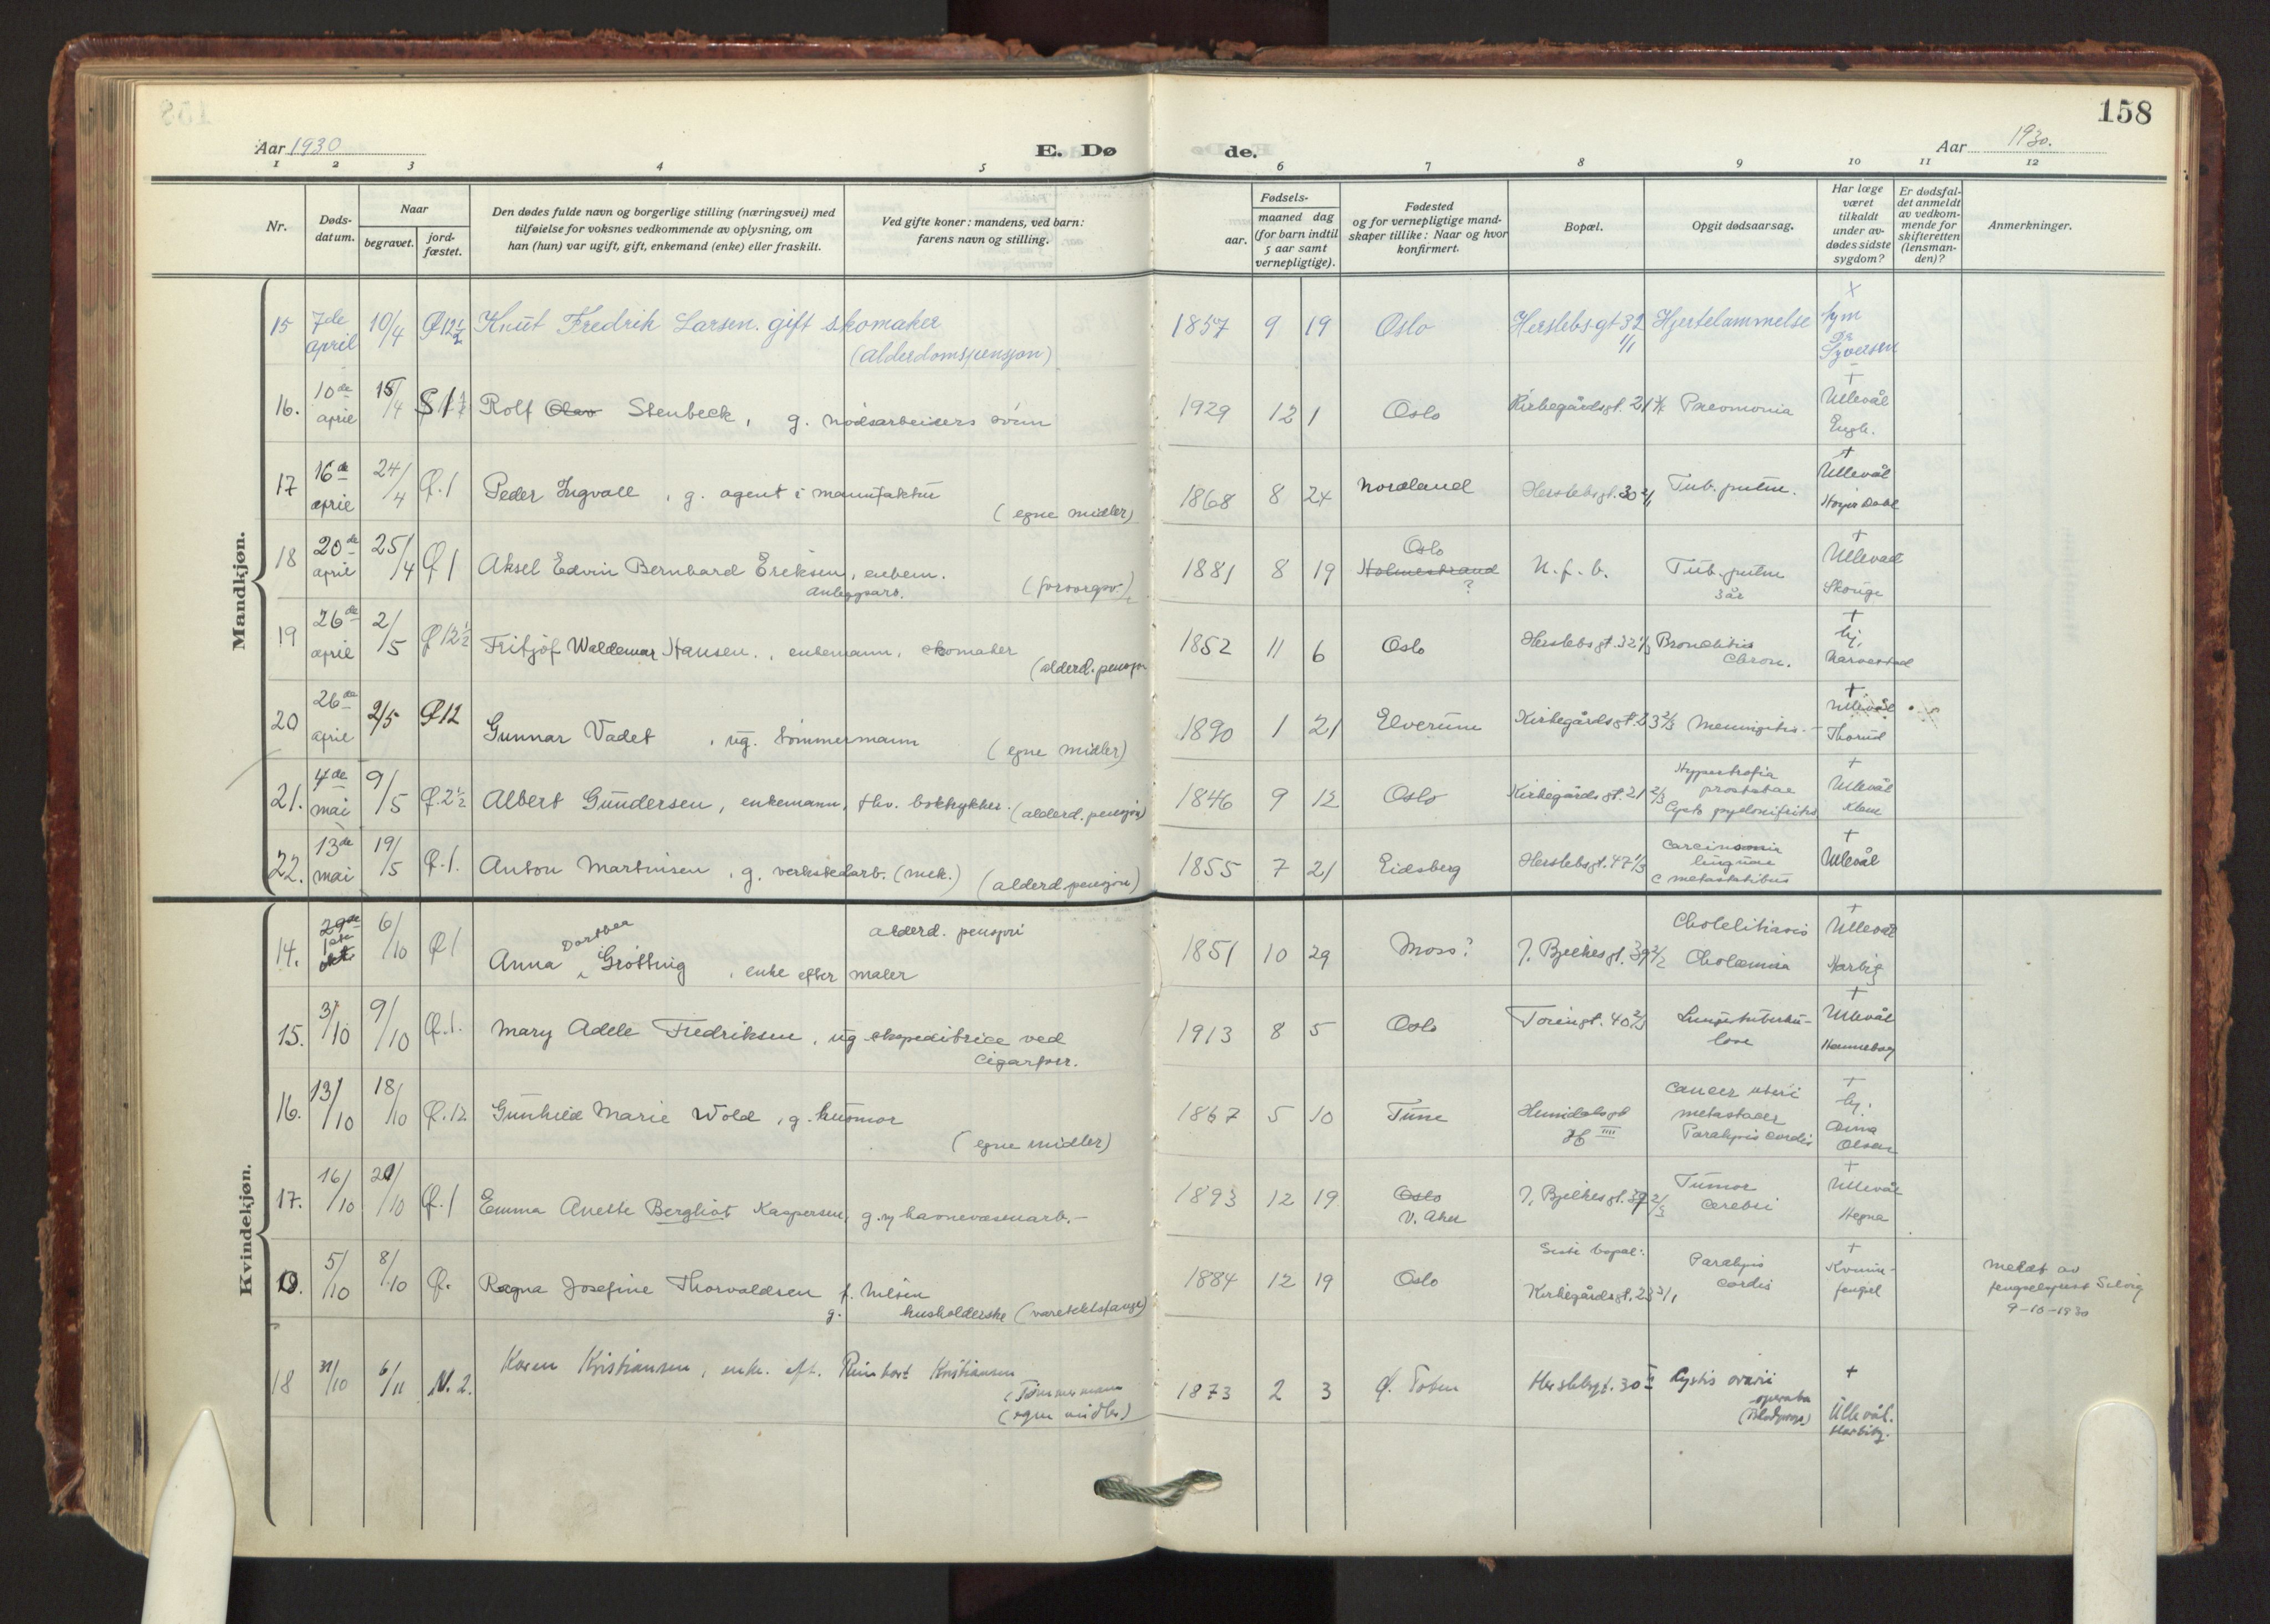 158
Aar 1930
E. Dø
de.
Aar 1930.
1 2 3 4 5 6 7 8 9 10 11 12
Nr.
Døds-
datum.
Naar
begravet.
jord-
fæstet.
Den dødes fulde navn og borgerlige stilling (næringsvei) med
tilføielse for voksnes vedkommende av oplysning, om
han (hun) var ugift, gift, enkemand (enke) eller fraskilt.
Ved gifte koner: mandens, ved barn:
farens navn og stilling.
Fødsels-
aar.
maaned dag
(for barn indtil
5 aar samt
vernepligtige).
Fødested
og for vernepligtige mand-
skaper tillike: Naar og hvor
konfirmert.
Bopæl.
Opgit dødsaarsag.
Har læge
været
tilkaldt
under av-
dødes sidste
sygdom?
Er dødsfal-
det anmeldt
av vedkom-
mende for
skifteretten
(lensman-
den)?
Anmerkninger.
Mandkjøn.
15 7de april 10/4 Ø 12½ Knut Fredrik Larsen. gift skomaker
(alderdomspensjon)
1857 9 19 Oslo Herslebsgt 32 1/1 Hjertelammelse x hjm Dr
16. 10de april 15/4 S 1½ Rolf Olav Stenbeck, g. nødsarbeiders sønn
1929 12 1 Oslo Kirkegårdsgt. 21 Pneomonia + Ullevål Engh.
17 16de april 24/4 Ø. 1 Peder Ingvall, g. agent i manufaktur
(egne midler)
1868 8 24 Nordland Herslebsgt. 30 2/1 Tub. pulm. + Ullevål
18 20de april 25/4 Ø 1 Aksel Edvin Bernhard Eriksen, enkem.
anleggsarb. (forsorgsv.)
1881 8 19 Oslo Holmestrand ? U. f. b. Tub. pulm 3 år + Ullevål Skouge
19 26de april 2/5 Ø 12½ Fritjof Waldemar Hansen, enkemann, skomaker
(alderd. pensjon
1852 11 6 Oslo Herslebsgt. 32 1/3 Bronchitis chron. + hj. Narvestad
20 26de april 2/5 Ø 12 Gunnar Vadet, ug. tømmermann
(egne midler)
1890 1 21 Elverum Kirkegårdsgt. 23 2/3 Meningitis. + Ullevål Thorud
21. 4de mai 9/5 Ø. 2½ Albert Gundersen, enkemann, fhv. boktrykker. (alderd. pensjon)
1846 9 12 Oslo Kirkegårdsgt. 21 2/3 Hypertrofia prostatae Cysto pyelonifritis + Ullevål
22. 13de mai 19/5 Ø. 1. Anton Martinisen, g. verkstedarb. (mek.) (alderd. pensjon)
1855 7 21 Eidsberg Herslebsgt. 47 1/3 Carcinoma linguae c metastatibus + Ullevål
Kvindekjøn.
14. 6/10 Ø 1 Anna Dorthea Grøtting, enke efter maler
alderd. pensjon
1851 10 29 Moss? J. Bjelkesgt. 39 2/2 Cholelithiasis Cholæmia + Ullevål Harbitz
15. 3/10 9/10 Ø. 1. Mary Adele Fredriksen, ug ekspeditrice ved
cigarforr.
1913 8 5 Oslo Tøiengt. 40 2/3 Lungetuberku-
lose + Ullevål Hanneborg
16. 13/10 18/10 Ø. 12 Gunhild Marie Wold, g. husmor
(egne midler)
1867 5 10 Tune Cancer uteri metastaser Paralysis cordis + hj. Olsen
17. 16/10 Ø. 1 Emma Anette Bergliot Kaspersen, g. m havnevæsenarb.-
1893 12 19 Oslo V. Aker J. Bjelkesgt. 39 2/3 Tumor cerebri + Ullevål Hegna
5/10 8/10 Ø. Ragna Josefine Thorvaldsen f. Nilsen
g. husholderske (varetektsfange)
1884 12 19 Oslo Siste bopæl: Kirkegårdsgt. 23 Paralysis cordis + Kvinne-
fengsel
meldt av fengselsprest Selvig 9-10-1930
18 31/10 6/11 N. 2. Karen Kristiansen, enke. eft. Reinhart Kristiansen
(Tømmermann
(egne midler)
1873 2 3 Ø. Toten Herslebsgt. 30 Cystis ovarii operata (Blodpropp) + Ullevål. Harbitz.